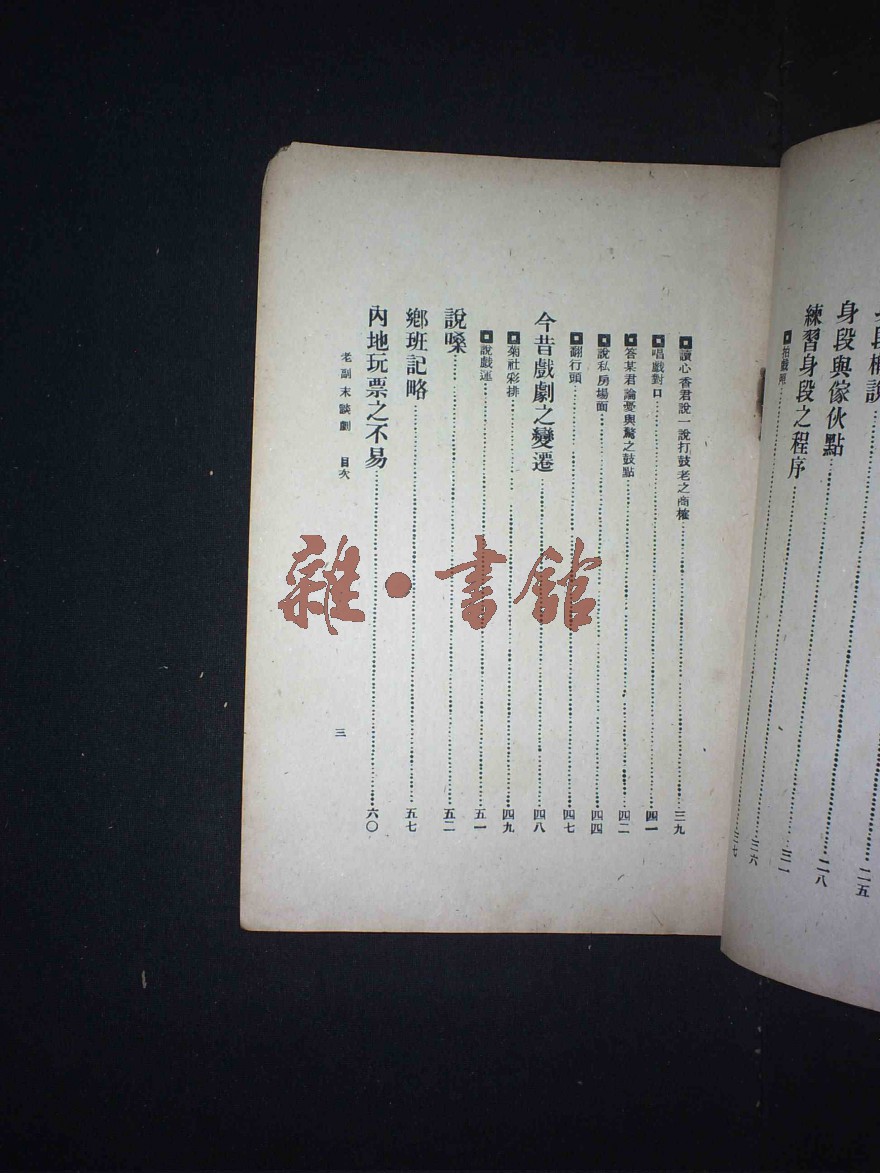 身段與傢伙點……二八
練習身段之程序……三一
讀心香君說一說打鼓老之商榷……三九
唱戲對口……四一
答某君論憂與驚之鼓點……四二
說私房場面……四四
翻行頭……四七
今昔戲劇之變遷……四八
菊社彩排……四九
說戲運……五一
說嗓……五二
鄉班記略……五七
內地玩票之不易……六〇
老副末談劇 目次
三
雜·書館